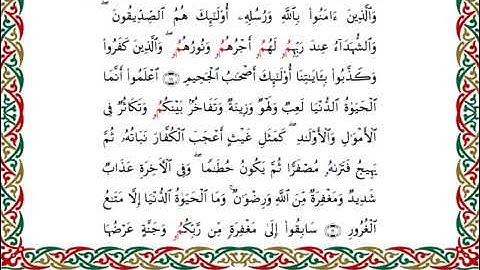 وَالَّذِينَ ءَامَنُواْ بِاللَّهِ وَرُسُلِهِۦ أُوْلَٰٓئِكَ هُمُ الصِّدِّيقُونَ ۖ
وَالشُّهَدَآءُ عِندَ رَبِّهِمُۥ لَهُمُۥٓ أَجْرُهُمُۥ وَنُورُهُمُۥ ۖ وَالَّذِينَ كَفَرُواْ
وَكَذَّبُواْ بِـَٔايَٰتِنَآ أُوْلَٰٓئِكَ أَصْحَٰبُ الْجَحِيمِ ۝ اَعْلَمُوٓاْ أَنَّمَا
الْحَيَوٰةُ الدُّنْيَا لَعِبٌ وَلَهْوٌ وَزِينَةٌ وَتَفَاخُرٌۢ بَيْنَكُمُۥ وَتَكَاثُرٌ فِى
الْأَمْوَٰلِ وَالْأَوْلَٰدِ ۖ كَمَثَلِ غَيْثٍ أَعْجَبَ الْكُفَّارَ نَبَاتُهُۥ ثُمَّ
يَهِيجُ فَتَرَىٰهُۥ مُصْفَرًّا ثُمَّ يَكُونُ حُطَٰمًا ۖ وَفِى الْأَخِرَةِ عَذَابٌ
شَدِيدٌ وَمَغْفِرَةٌ مِّنَ اللَّهِ وَرِضْوَٰنٌ ۚ وَمَا الْحَيَوٰةُ الدُّنْيَآ إِلَّا مَتَٰعُ
الْغُرُورِ ۝ سَابِقُوٓاْ إِلَىٰ مَغْفِرَةٍ مِّن رَّبِّكُمُۥ وَجَنَّةٍ عَرْضُهَا